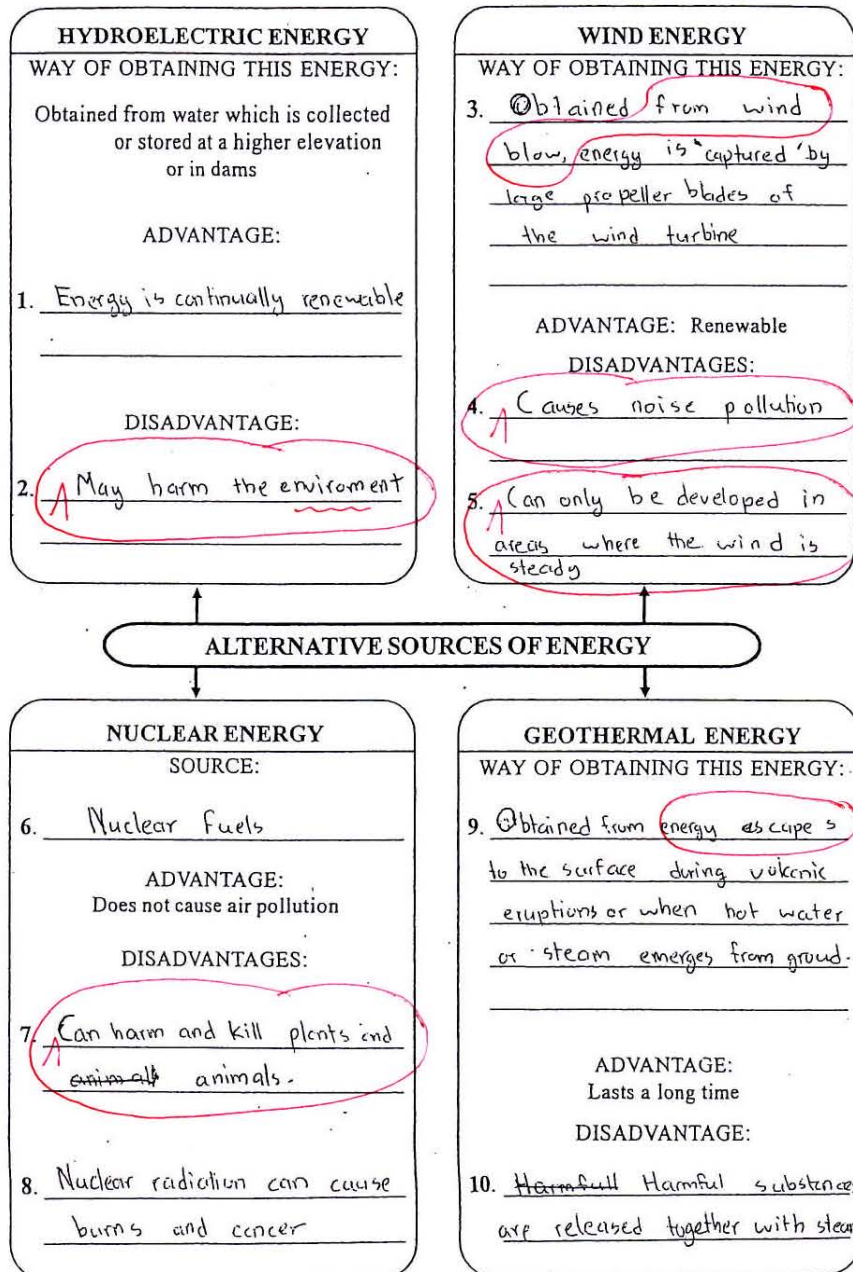 HYDROELECTRIC ENERGY
WAY OF OBTAINING THIS ENERGY:
Obtained from water which is collected
or stored at a higher elevation
or in dams
ADVANTAGE:
1. Energy is continually renewable
DISADVANTAGE:
2. May harm the enviroment
WIND ENERGY
WAY OF OBTAINING THIS ENERGY:
3. Obtained from wind
blow, energy is 'captured' by
large propeller blades of
the wind turbine
ADVANTAGE: Renewable
DISADVANTAGES:
4. Causes noise pollution
5. Can only be developed in
areas where the wind is
steady
ALTERNATIVE SOURCES OF ENERGY
NUCLEAR ENERGY
SOURCE:
6. Nuclear fuels
ADVANTAGE:
Does not cause air pollution
DISADVANTAGES:
7. Can harm and kill plants and
animals animals.
8. Nuclear radiation can cause
burns and cancer
GEOTHERMAL ENERGY
WAY OF OBTAINING THIS ENERGY:
9. Obtained from energy escapes
to the surface during volcanic
eruptions or when hot water
or steam emerges from groud.
ADVANTAGE:
Lasts a long time
DISADVANTAGE:
10. Harmfull Harmful substance
are released together with stea